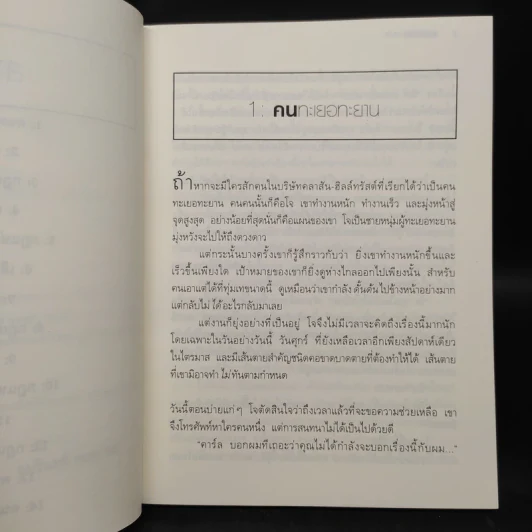 1 : คนทะเยอทะยาน
ถ้าหากจะมีใครสักคนในบริษัทคลาสัน-ฮิลล์ทรัสต์ที่เรียกได้ว่าเป็นคน
ทะเยอทะยาน คนคนนั้นก็คือโจ เขาทำงานหนัก ทำงานเร็ว และมุ่งหน้าสู่
จุดสูงสุด อย่างน้อยที่สุดนั่นก็คือแผนของเขา โจเป็นชายหนุ่มผู้ทะเยอทะยาน
มุ่งหวังจะไปให้ถึงดวงดาว
แต่กระนั้นบางครั้งเขาก็รู้สึกราวกับว่า ยิ่งเขาทำงานหนักขึ้นและ
เร็วขึ้นเพียงใด เป้าหมายของเขาก็ยิ่งดูห่างไกลออกไปเพียงนั้น สำหรับ
คนเอาแต่ได้ที่ทุ่มเทขนาดนี้ ดูเหมือนว่าเขากำลัง ดั้นด้น ไปข้างหน้าอย่างมาก
แต่กลับไม่ ได้ อะไรกลับมาเลย
แต่งานก็ยุ่งอย่างที่เป็นอยู่ โจจึงไม่มีเวลาจะคิดถึงเรื่องนี้มากนัก
โดยเฉพาะในวันอย่างวันนี้ วันศุกร์ ที่ยังเหลือเวลาอีกเพียงสัปดาห์เดียว
ในไตรมาส และมีเส้นตายสำคัญชนิดคอขาดบาดตายที่ต้องทำให้ได้ เส้นตาย
ที่เขามิอาจทำ ไม่ ทันตามกำหนด
วันนี้ตอนบ่ายแก่ๆ โจตัดสินใจว่าถึงเวลาแล้วที่จะขอความช่วยเหลือ เขา
จึงโทรศัพท์หาใครคนหนึ่ง แต่การสนทนาไม่ได้เป็นไปด้วยดี
“คาร์ล บอกผมทีเถอะว่าคุณไม่ได้กำลังจะบอกเรื่องนี้กับผม...”